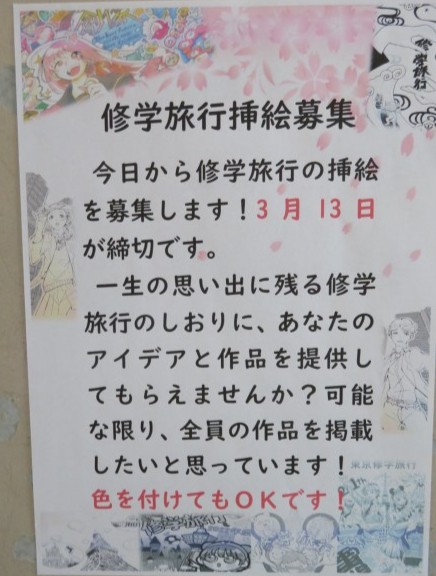 修学旅行
修学旅行挿絵募集
今日から修学旅行の挿絵
を募集します！3月13日
が締切です。
一生の思い出に残る修学
旅行のしおりに、あなたの
アイデアと作品を提供し
てもらえませんか？可能
な限り、全員の作品を掲載
したいと思っています！
色を付けてもOKです！
東京修学旅行
修学旅行